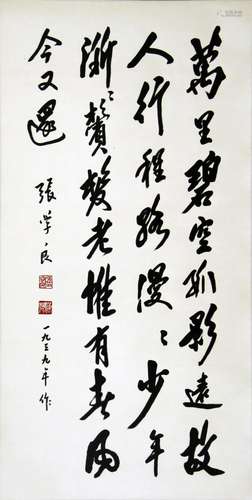 萬里碧空孤影遠故
人行程路漫〻少年
漸〻鬢髮老惟有春風
今又還
張学良
一九三九年作